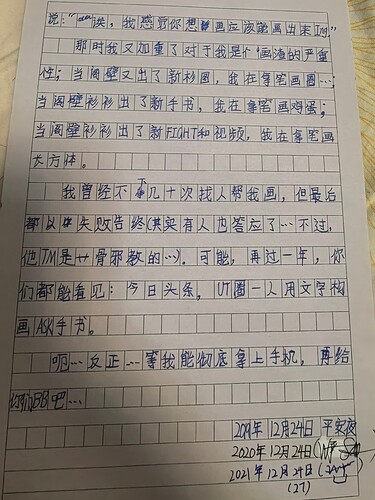 说："诶，我感觉你想画画应该能画出来Ing"
那时我又加重了对于我是个"画渣的严重
性；当隔壁又出了新杉图，我在拿笔画圆…；
当阁壁衫衫出了新手书，我在拿笔画鸡蛋；
当阁壁衫衫出了新FIGHT和视频，我在拿笔画
长方体。
我曾经不下几十次找人帮我画，但最后
都以失败告终(其实有人内答应了…不过，
他TM是个骨邪教的…)。可能，再过一年，你
们都能看见：今日头条，UT圈一人用文字构
画ASK手书。
呃…反正…等我能彻底拿上手机，再给
你们BB吧…
2019年12月24日 平安夜
2020年12月24日
2021年12月24日
(27)